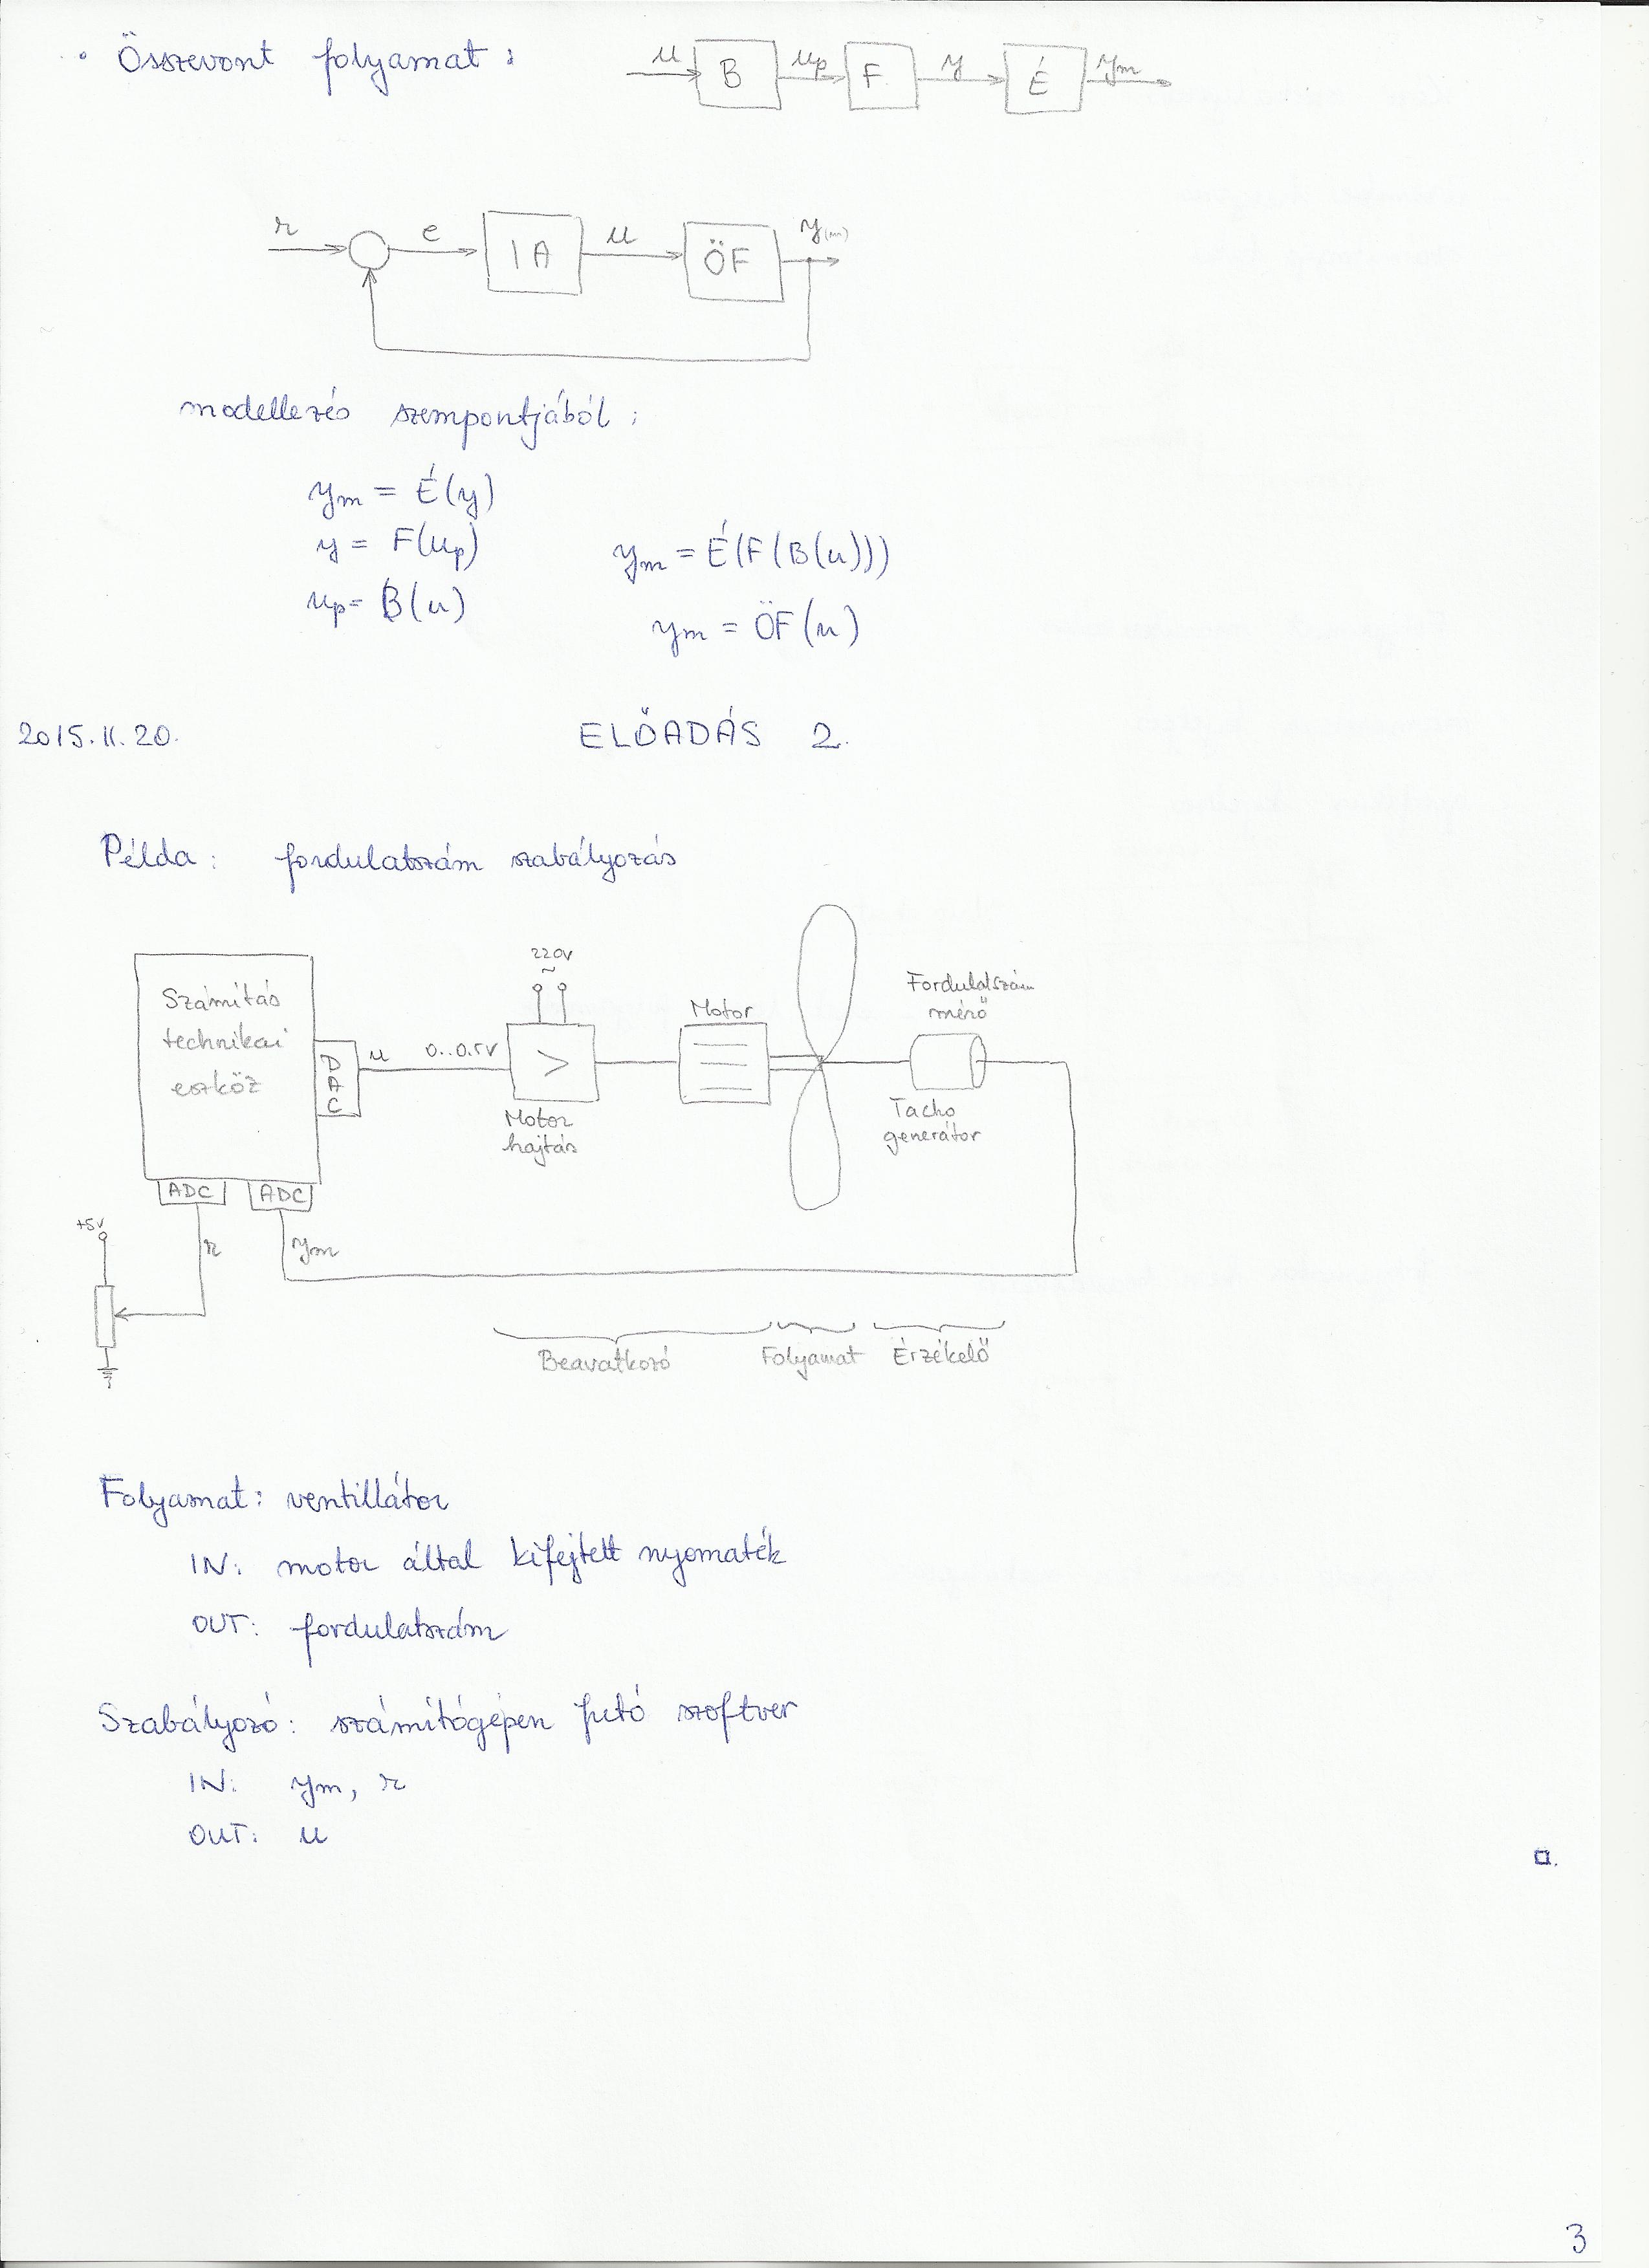 • Összevont folyamat:
u B up F y É ym
r e IA u ÖF y(m)
modellezés szempontjából:
ym = É(y)
y = F(up)
up = B(u)
ym = É(F(B(u)))
ym = ÖF(u)
2015.II.20.
ELŐADÁS 2.
Példa: fordulatszám szabályozás
Számítás
technikai
eszköz
DAC
u 0..0.5V
220V
~
>
Motor
hajtás
Motor
Fordulatszám
mérő
Tacho
generátor
ADC ADC
+5V
r
ym
Beavatkozó Folyamat Érzékelő
Folyamat: ventillátor
IN: motor által kifejtett nyomaték
OUT: fordulatszám
Szabályozó: számítógépen futó szoftver
IN: ym, r
OUT: u
3